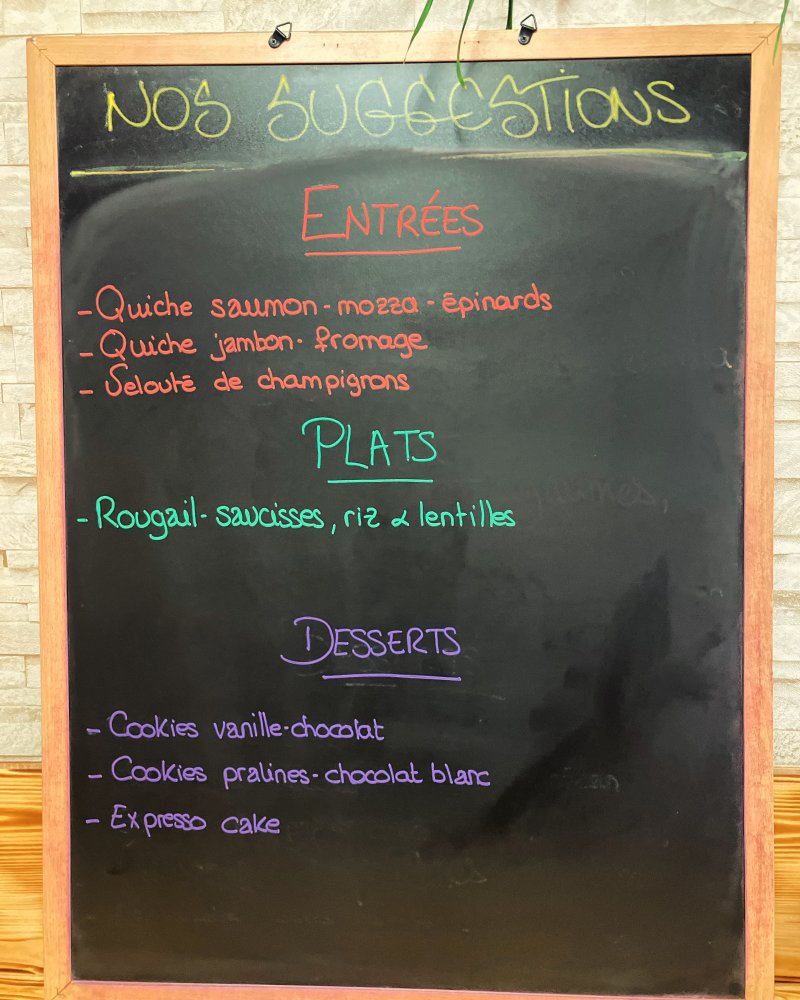 NOS SUGGESTIONS
ENTRÉES
- Quiche saumon - mozza - épinards
- Quiche jambon - fromage
- Velouté de champignons
PLATS
- Rougail - saucisses, riz & lentilles
DESSERTS
- Cookies vanille - chocolat
- Cookies pralines - chocolat blanc
- Expresso cake